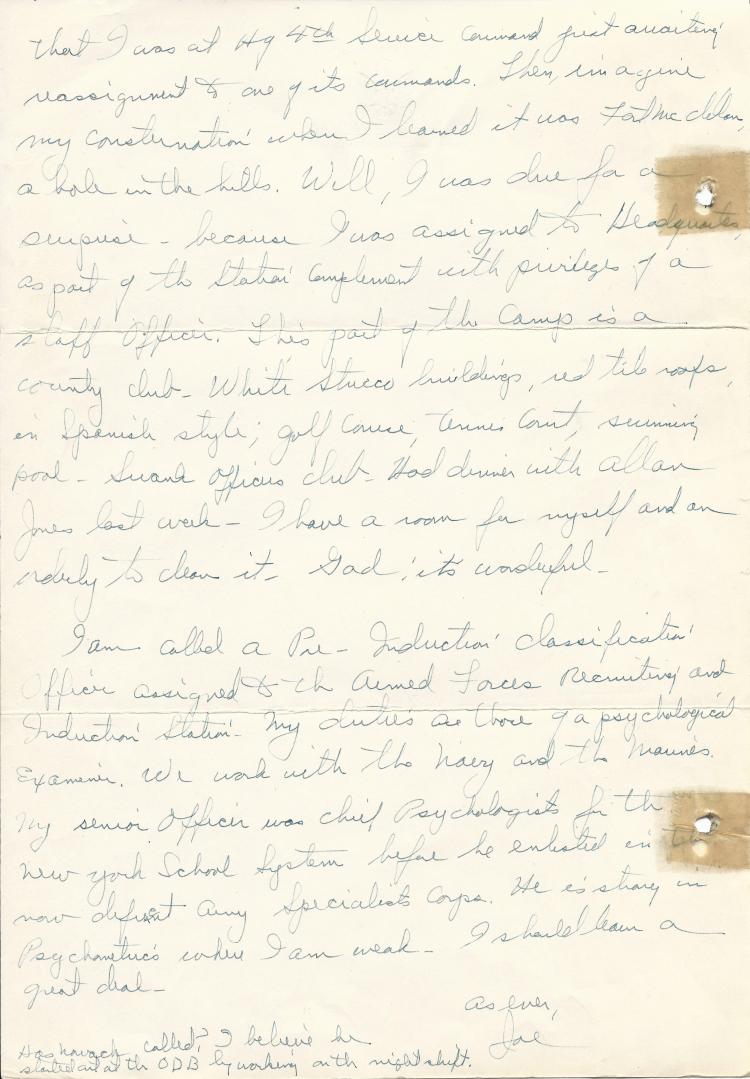 that I was at Hq 4th Service Command just awaiting
reassignment to one of its commands. Then, imagine
my consternation when I learned it was Fort McClelan,
a hole in the hills. Well, I was due for a
surprise - because I was assigned to Headquarters,
as part of the Station Complement with privileges of a
staff Officer. This part of the Camp is a
county club - White Stucco buildings, red tile roofs,
in Spanish style; golf course, tennis court, swimming
pool - Swank Officers club - Had dinner with Allan
Jones last week - I have a room for myself and an
orderly to clean it - Gad, it's wonderful -
I am called a Pre-Induction classification
Officer assigned to the Armed Forces Recruiting and
Induction Station - My duties are those of a psychological
Examiner. We work with the Navy and the Marines.
My senior Officer was chief Psychologists for the
New York School System before he enlisted in the
now defunct Army Specialists Corps. He is strong in
Psychometrics where I am weak - I should learn a
great deal -
As ever,
Joe
Has called? I believe he
started out at the ODB by working on the night shift.